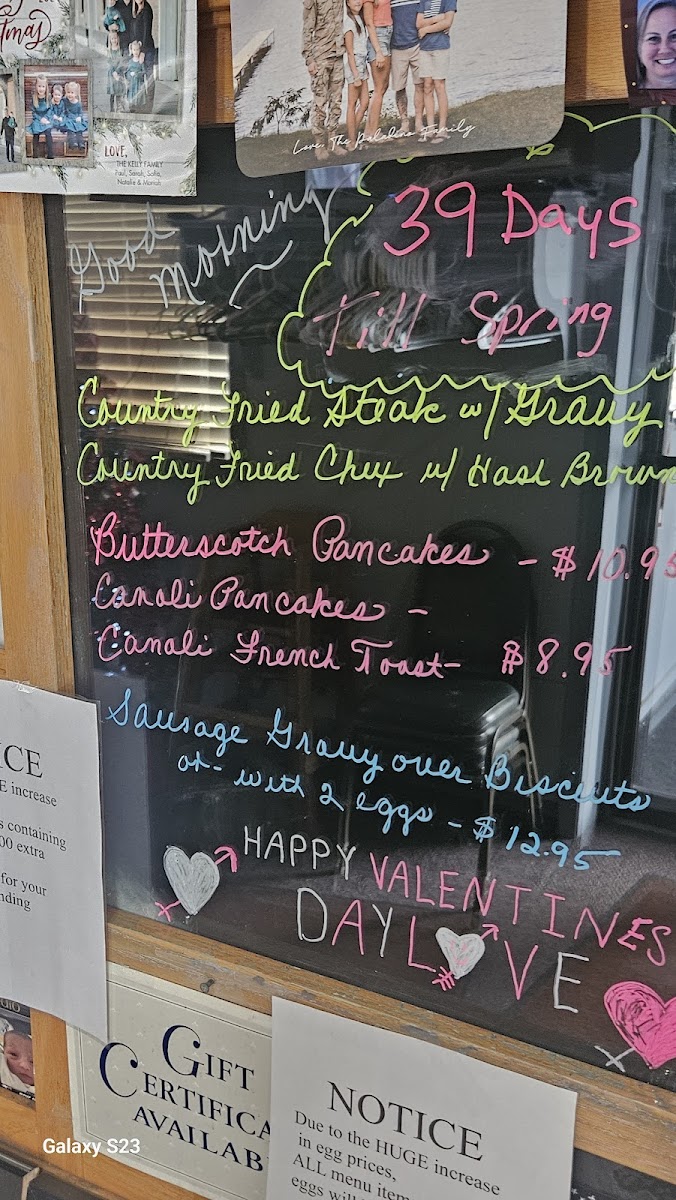 tmas
LOVE,
THE KELLY FAMILY
Paul, Sarah, Sofia,
Natalie & Mariah
Love, The Paladino Family
Good
Morning
39 Days
Till Spring
Country Fried Steak w/ Gravy
Country Fried Chix w/ Hash Brown
Butterscotch Pancakes - $10.95
Canoli Pancakes -
Canoli French Toast - $8.95
Sausage Gravy over Biscuits
or - with 2 eggs - $12.95
HAPPY VALENTINES
DAY LOVE
ICE
E increase
s containing
00 extra
for your
nding
GIFT
CERTIFICA
AVAILAB
NOTICE
Due to the HUGE increase
in egg prices,
ALL menu item
eggs will
Galaxy S23